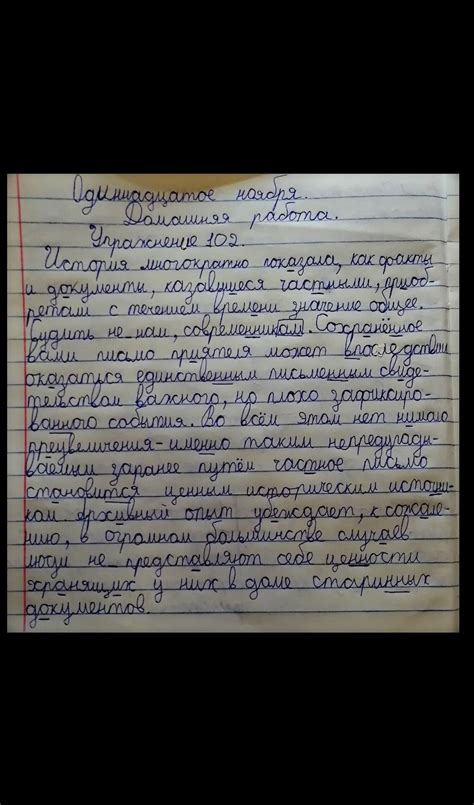 Одиннадцатое ноября.
Домашняя работа.
Упражнение 102.
История многократно показала, как факты
и документы, казавшиеся частными, приоб-
ретали с течением времени значение общее.
Судить не нам, современникам. Сохранённое
вами письмо приятеля может впоследствии
оказаться единственным письменным свиде-
тельством важного, но плохо зафиксиро-
ванного события. Во всём этом нет нимало
преувеличения - именно таким непредугады-
ваемым заранее путём частное письмо
становится ценным историческим источни-
ком. Архивный опыт убеждает, к сожале-
нию, в огромном большинстве случаев
люди не представляют себе ценности
хранящих у них в доме старинных
документов.